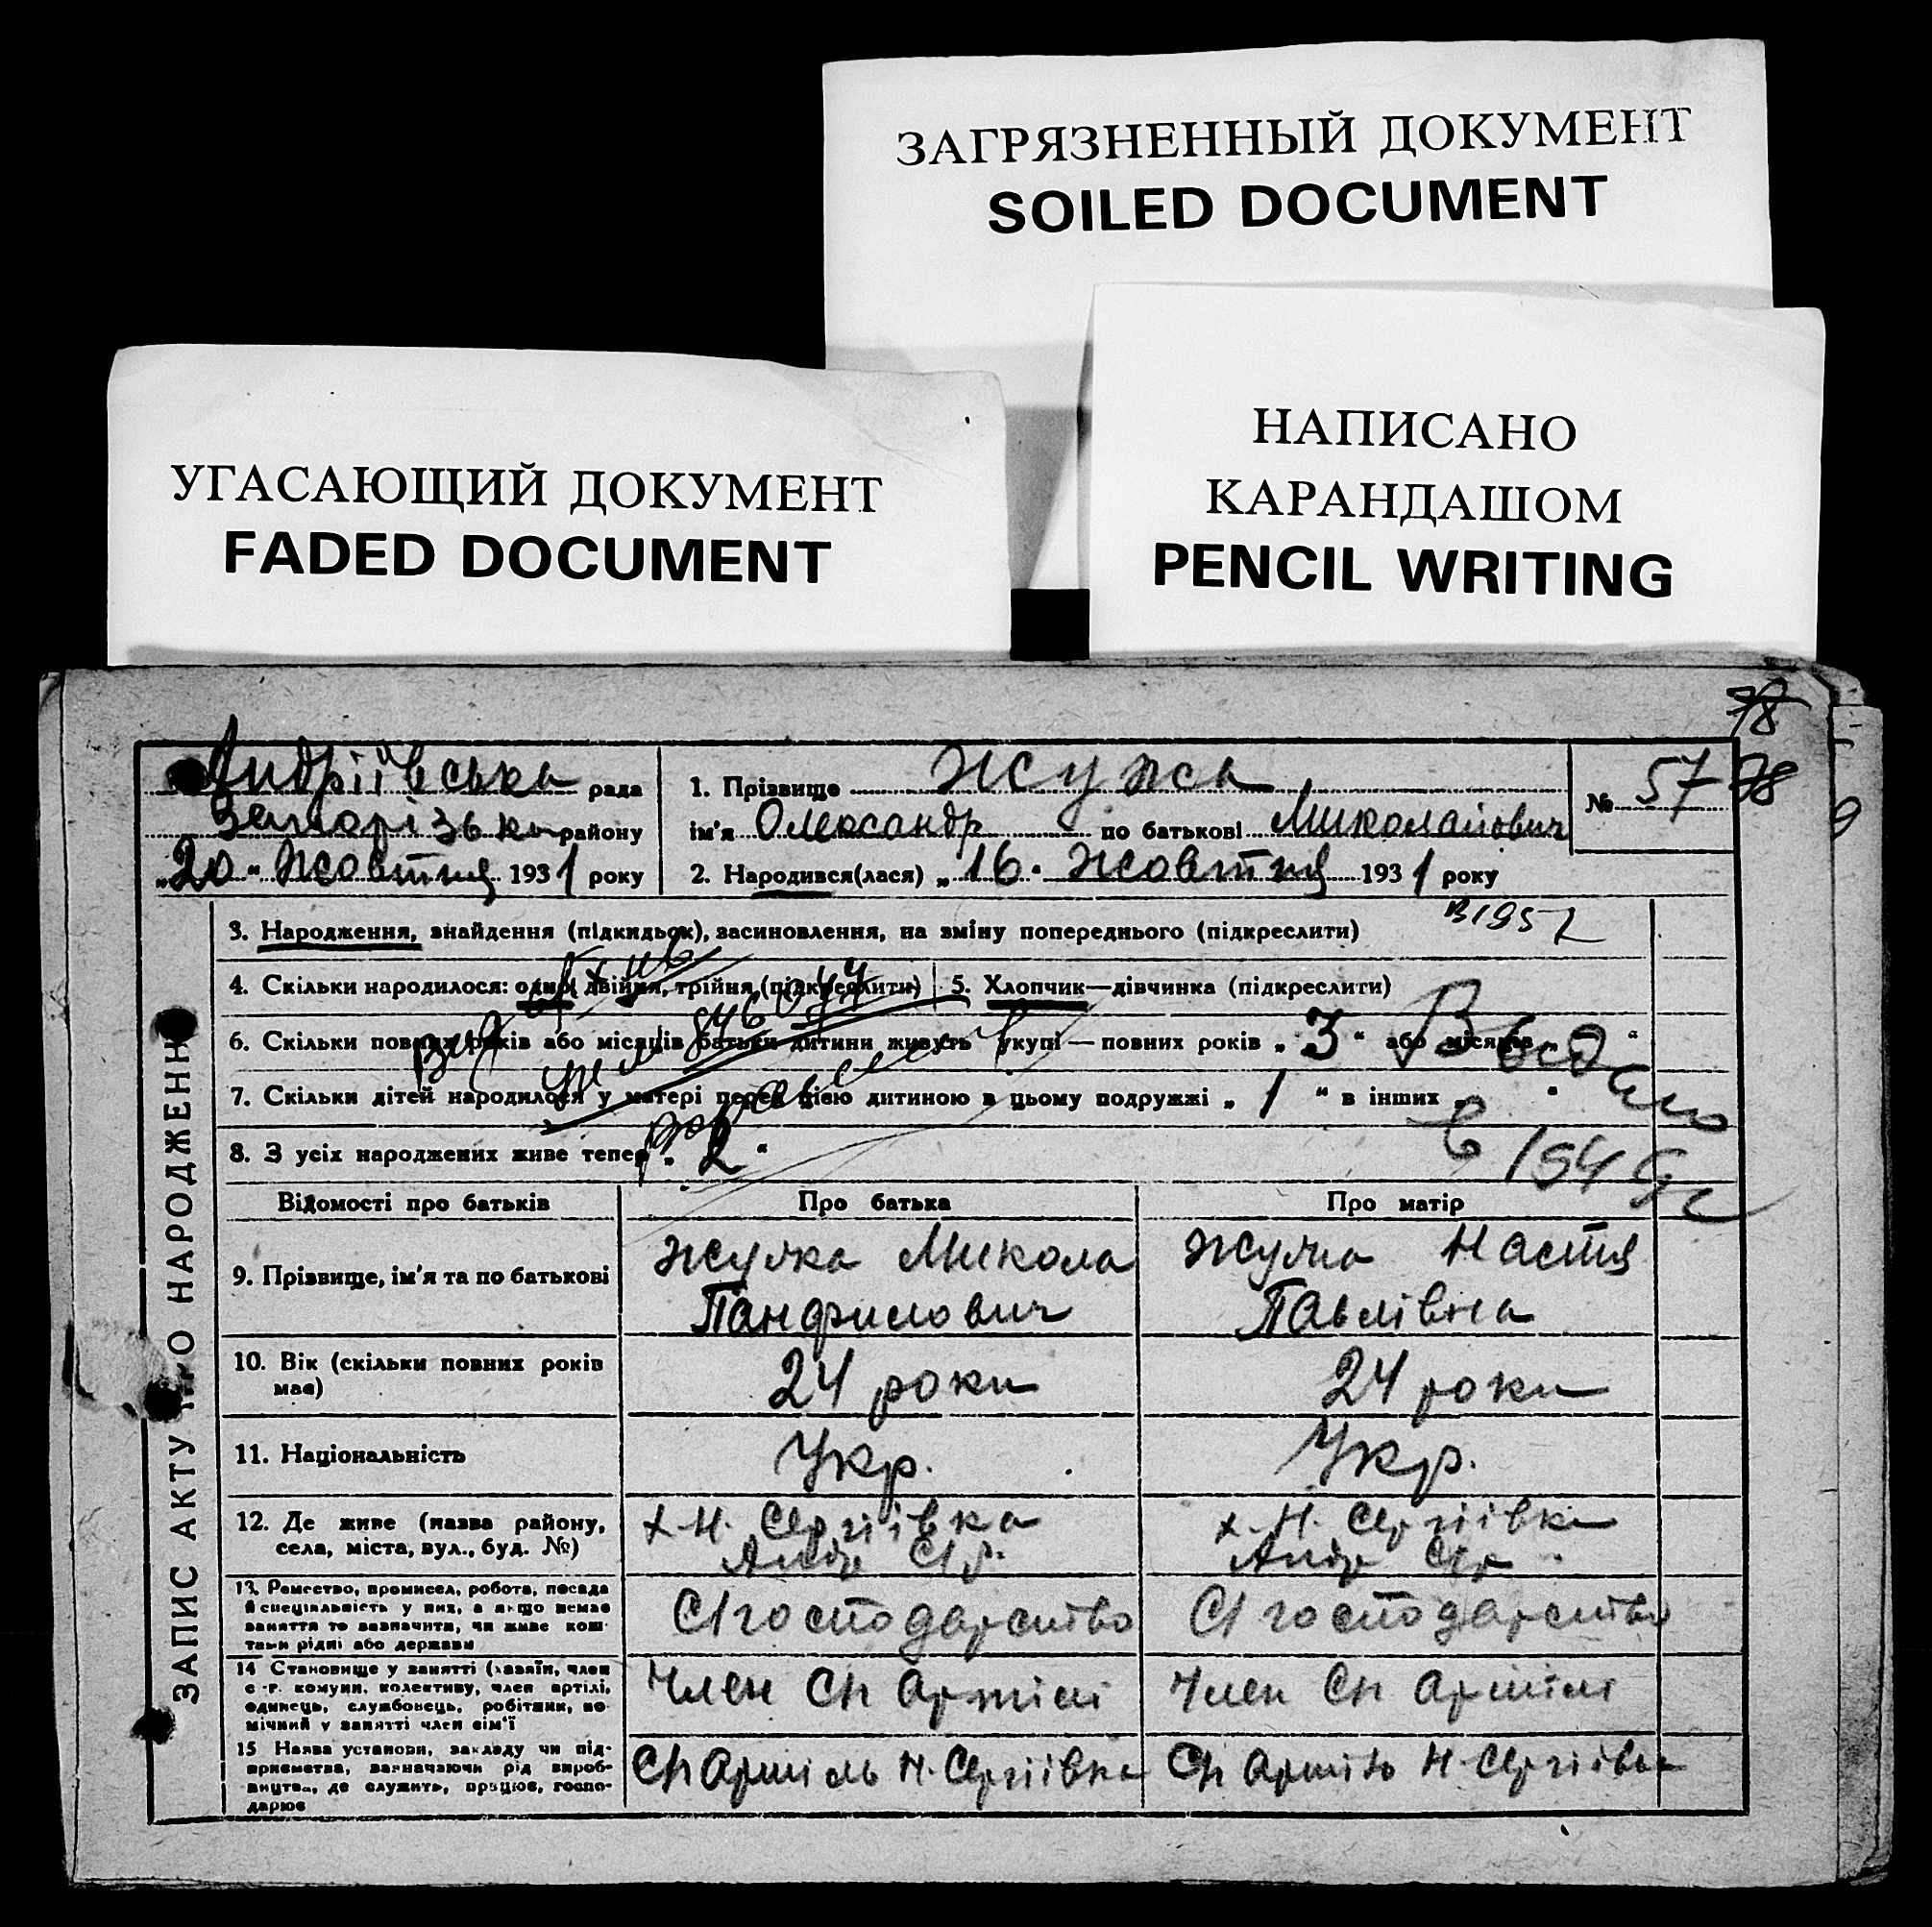 ЗАГРЯЗНЕННЫЙ ДОКУМЕНТ
SOILED DOCUMENT
НАПИСАНО
КАРАНДАШОМ
PENCIL WRITING
УГАСАЮЩИЙ ДОКУМЕНТ
FADED DOCUMENT
78
Андріївська рада
Запорізьки району
„20“ Жовтня 1931 року
1. Прізвище
ім'я Олександр по батькові Миколайович
2. Народився(лася) „16“ Жовтня 1931 року
№ 57 78
ЗАПИС АКТУ ПРО НАРОДЖЕННЯ
3. Народження, знайдення (підкидьок), засиновлення, на зміну попереднього (підкреслити)
4. Скільки народилося: одно, двійня, трійня (підкреслити)
5. Хлопчик—дівчинка (підкреслити)
6. Скільки повних років або місяців батьки дитини живуть укупі — повних років „3“ або місяців „ “
7. Скільки дітей народилося у матері перед цією дитиною в цьому подружжі „1“ в інших „ “
8. З усіх народжених живе тепер „2“
в 1949
Відомості про батьків
Про батька
Про матір
9. Прізвище, ім'я та по батькові
Микола
Панфилович
Настя
Павлівна
10. Вік (скільки повних років має)
24 роки
24 роки
11. Національність
Укр.
Укр.
12. Де живе (назва району, села, міста, вул., буд. №)
х. Н. Сергіївка
Андр С/р.
х. Н. Сергіївка
Андр С/р
13. Ремество, промисел, робота, посада й спеціяльність у них, а якщо немає заняття то зазначити, чи живе коштами рідні або держави
С/господарство
С/господарство
14 Становище у занятті (хазяїн, член с.-г. комуни, колективу, член артілі, одинець, службовець, робітник, помічний у занятті член сім'ї
Член Сп Артілі
Член Сп Артілі
15 Назва установи, закладу чи підприємства, зазначаючи рід виробництва, де служить, працює, господарює
Сп Артіль Н. Сергіївка
Сп Артіль Н. Сергіївка